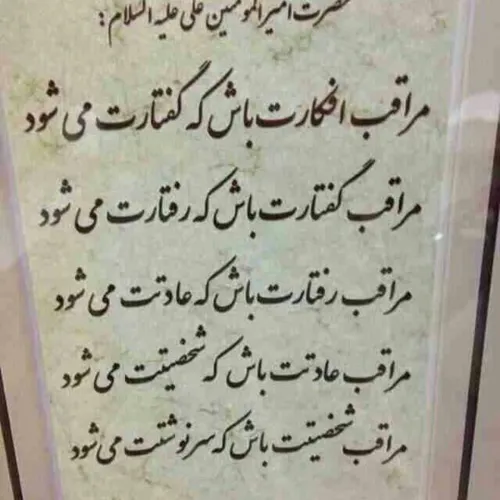 حضرت امیرالمومنین علی علیه السلام:
مراقب افکارت باش که گفتارت می شود
مراقب گفتارت باش که رفتارت می شود
مراقب رفتارت باش که عادتت می شود
مراقب عادتت باش که شخصیتت می شود
مراقب شخصیتت باش که سرنوشتت می شود